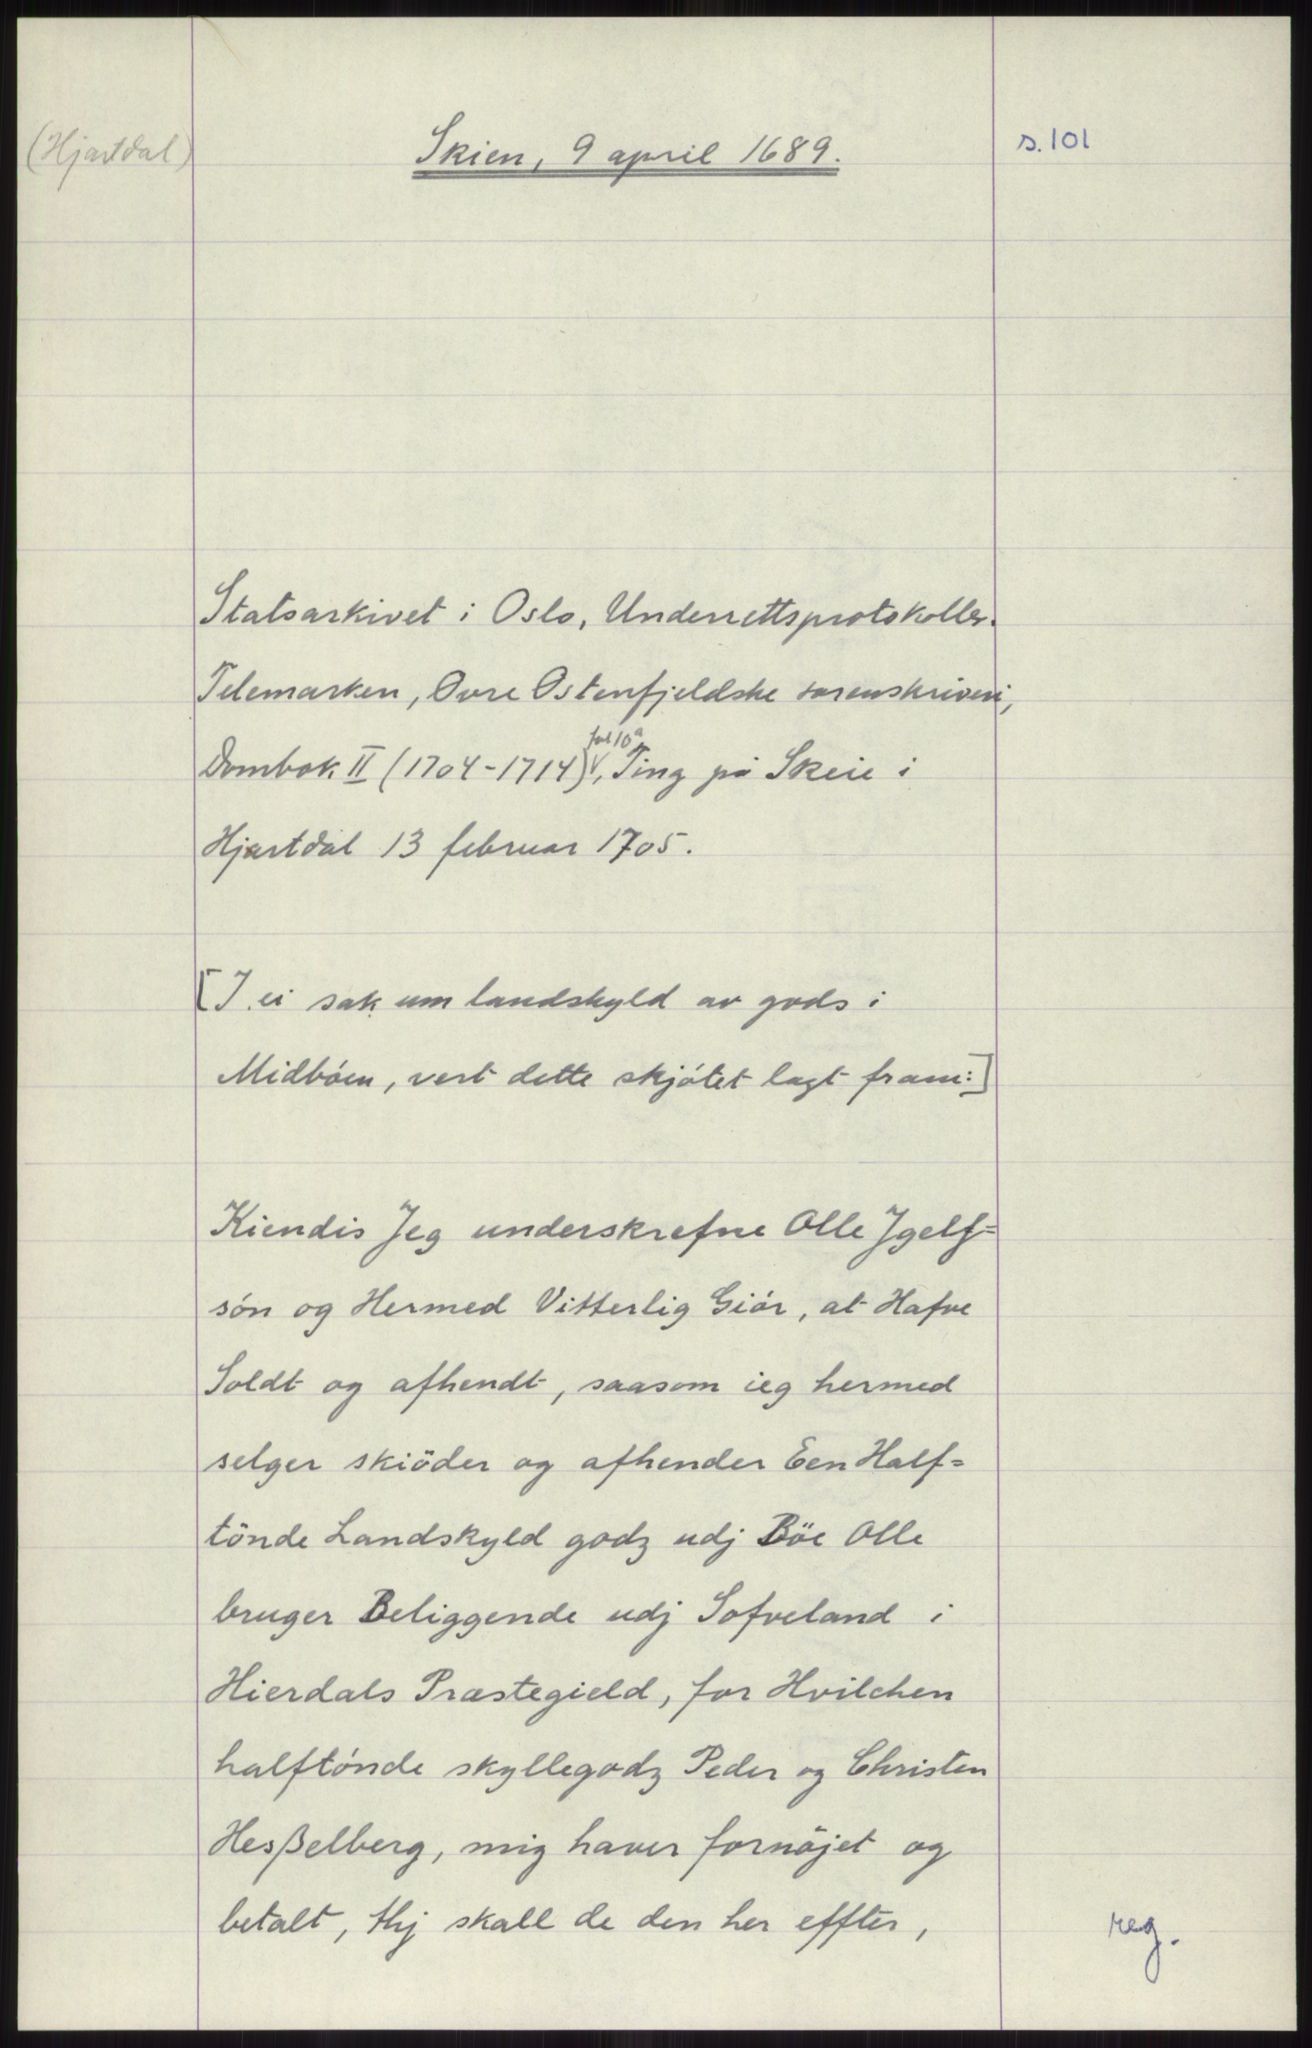 (Hjartdal)
Skien, 9 april 1689.
s. 101
Statsarkivet i Oslo, Underrettsprotokoller.
Telemarken, Øvre Østenfjeldske sorenskriveri,
fol 10ª
Dombok II (1704-1714)√, Ting på Skeie i
Hjartdal 13 februar 1705.
[I ei sak um landskyld av gods i
Midbóen, vert dette skjótet lagt fram:]
Kiendis Jeg underskrefne Olle Jgelf=
són og Hermed Vitterlig Giór, at Hafve
Soldt og afhendt, saasom ieg hermed
selger skiöder og afhender Een Half=
tönde Landskyld godz udj Böe Olle
bruger Beliggende udj Sofveland i
Hierdals Præstegield, for Hvilchen
halftónde skyllegodz Peder og Christen
Hesßelberg, mig haver fornöjet og
betalt, thj skall de den her effter,
reg.